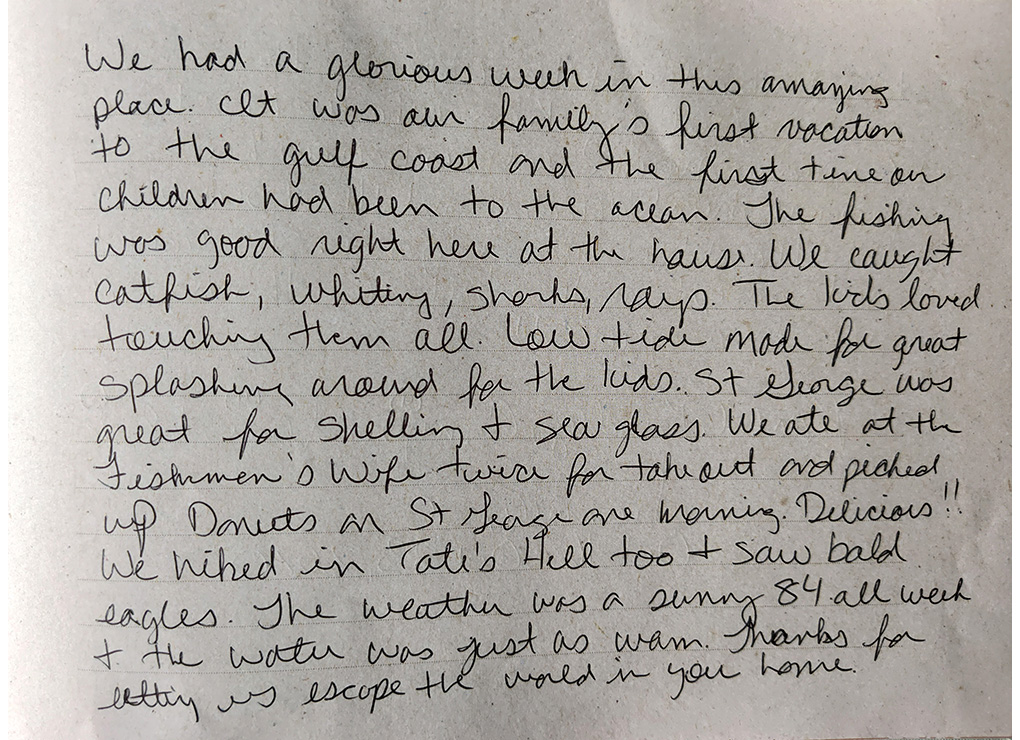 We had a glorious week in this amazing
place. It was our family's first vacation
to the gulf coast and the first time our
children had been to the ocean. The fishing
was good right here at the house. We caught
catfish, whiting, sharks, rays. The kids loved
touching them all. Low tide made for great
splashing around for the kids. St George was
great for shelling + sea glass. We ate at the
Fishermen's Wife twice for takeout and picked
up Donuts on St George one morning. Delicious!!
We hiked in Tate's Hell too + saw bald
eagles. The weather was a sunny 84 all week
+ the water was just as warm. Thanks for
letting us escape the world in your home.